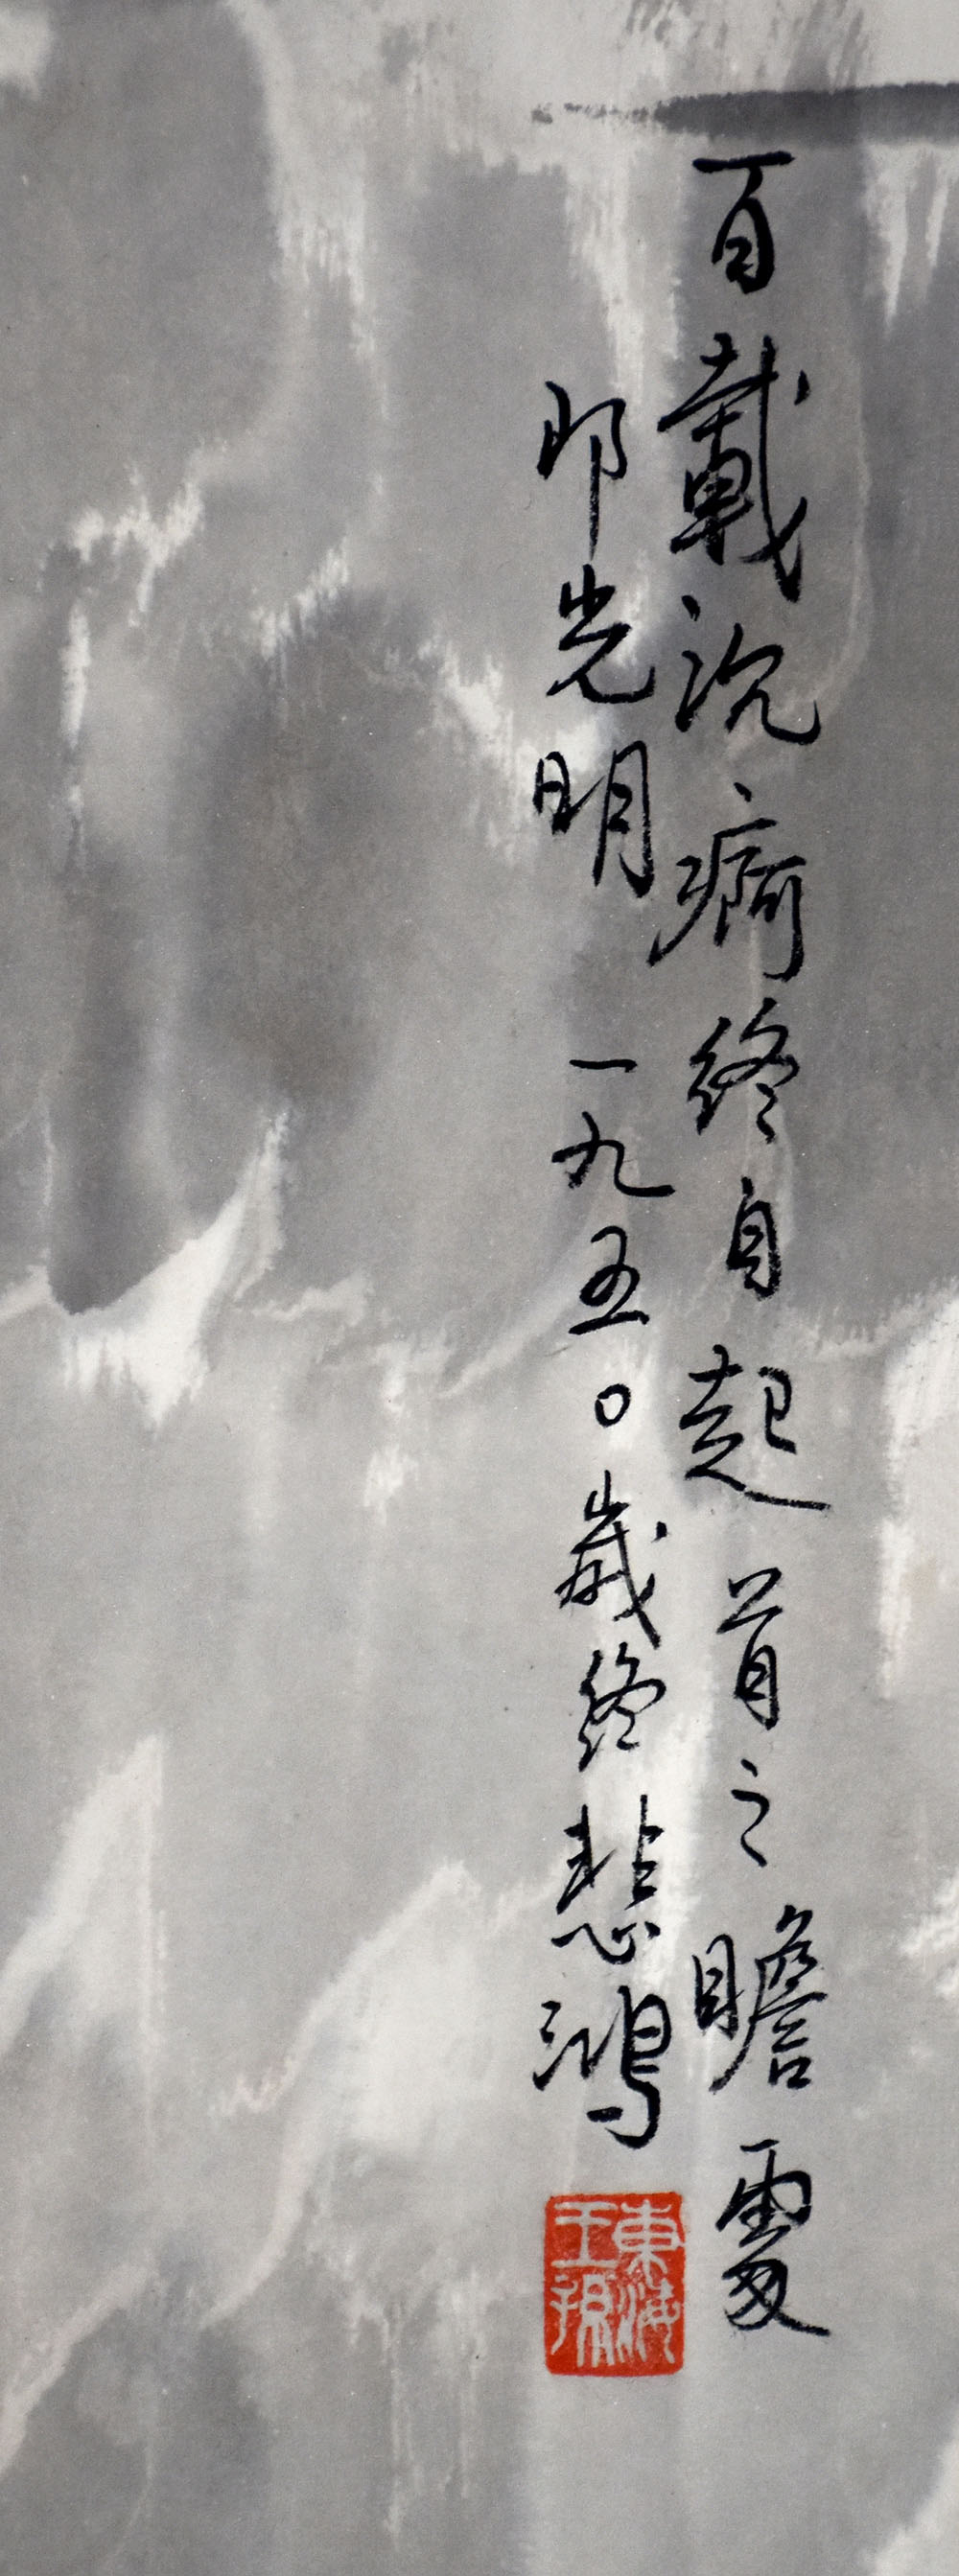 百載沉痾終自起首之瞻處
即光明 一九五〇歲終悲鴻
東海
王孫